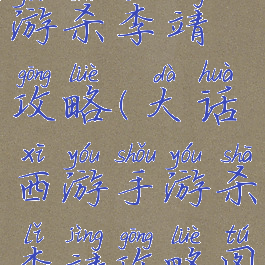 游杀李靖
gōng lüè dà huà
攻略(大话
xī yóu shǒu yóu shā
西游手游杀
lǐ jìng gōng lüè tú
李靖攻略图